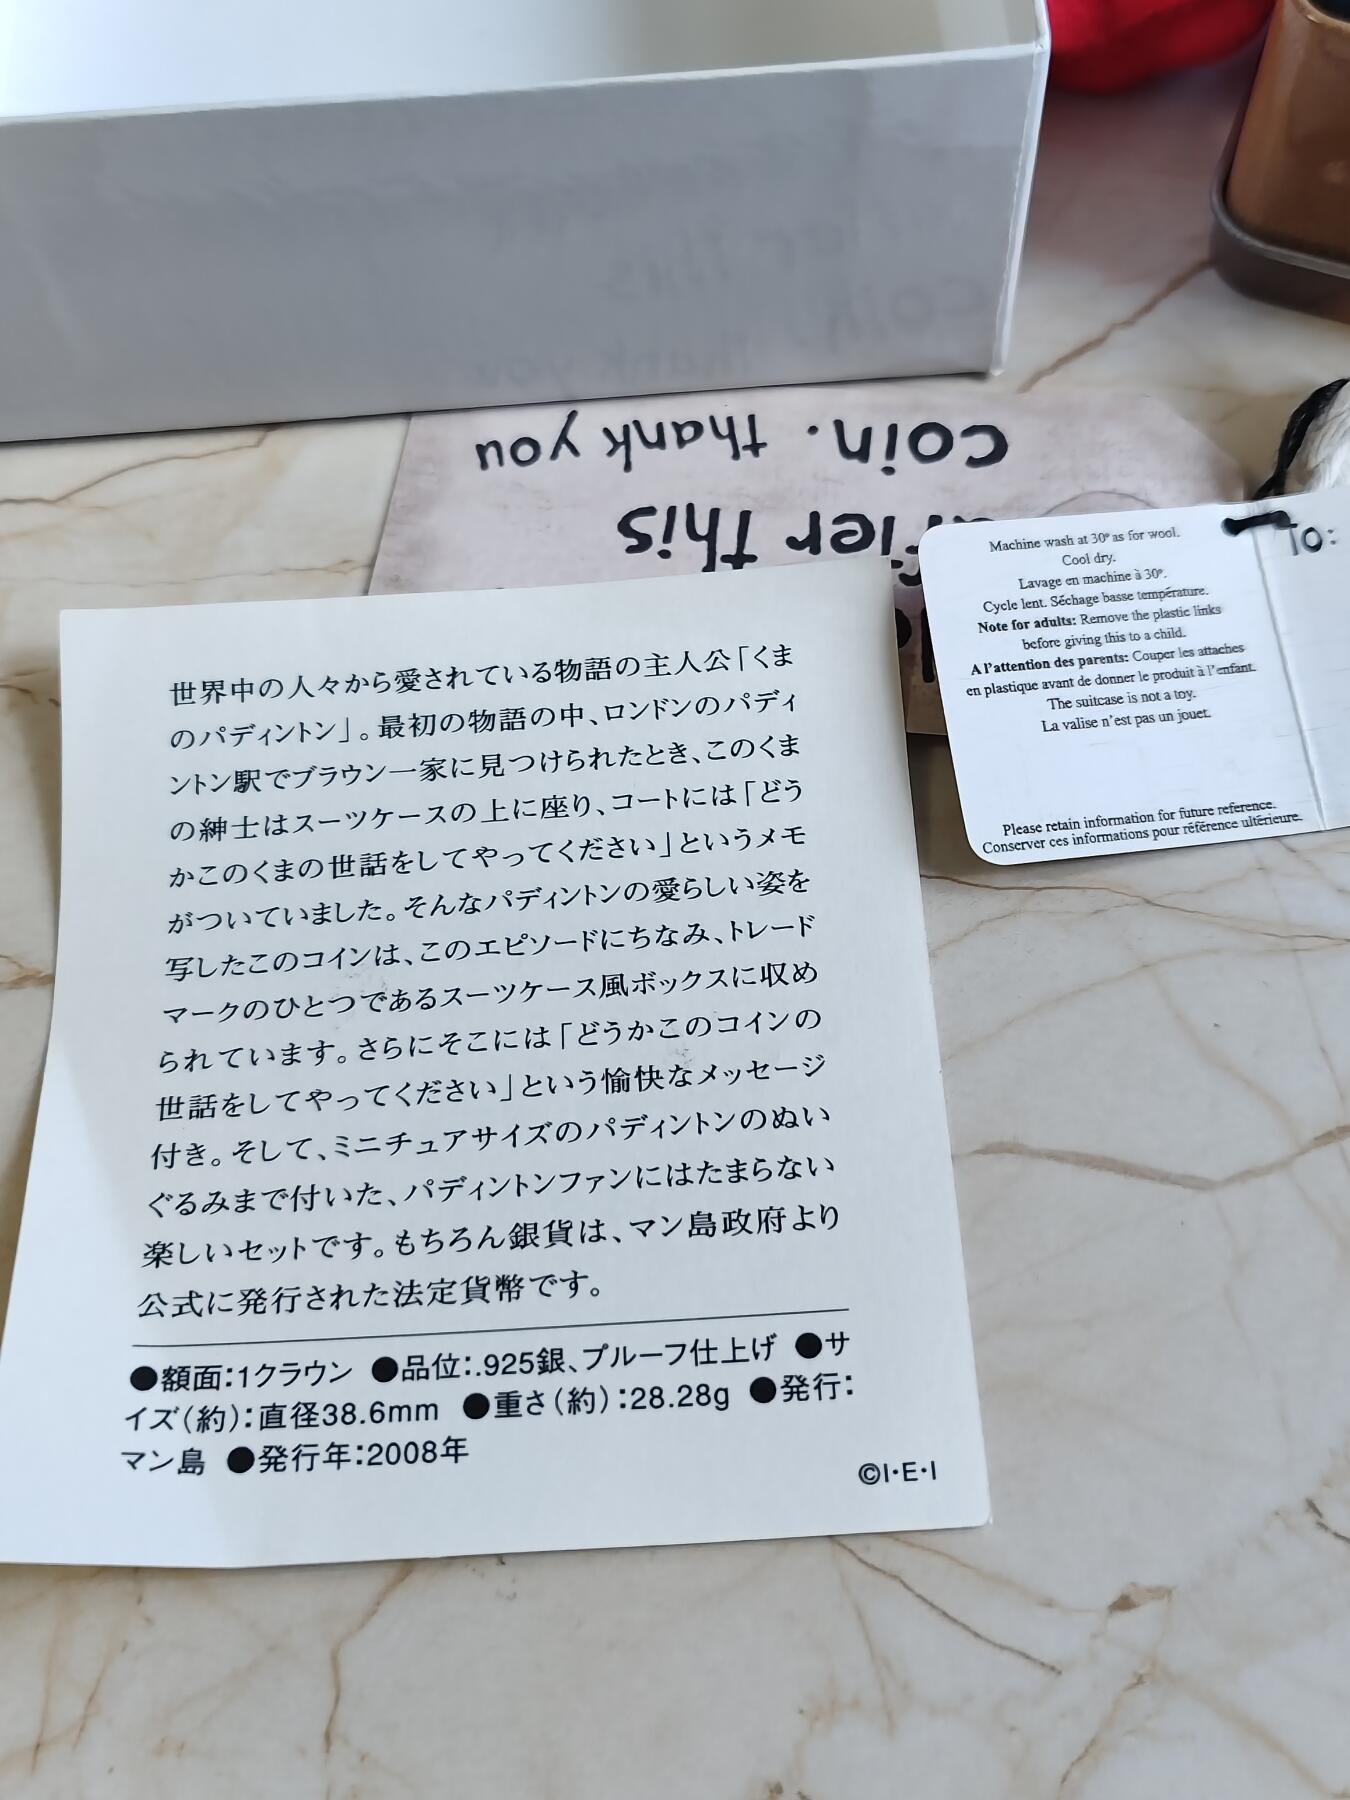 coin. thank you
after this
Machine wash at 30º as for wool.
Cool dry.
Lavage en machine à 30º.
Cycle lent. Séchage basse température.
Note for adults: Remove the plastic links
before giving this to a child.
A l'attention des parents: Couper les attaches
en plastique avant de donner le produit à l'enfant.
The suitcase is not a toy.
La valise n'est pas un jouet.
Please retain information for future reference.
Conserver ces informations pour référence ultérieure.
To:
世界中の人々から愛されている物語の主人公「くま
のパディントン」。最初の物語の中、ロンドンのパディ
ントン駅でブラウン一家に見つけられたとき、このくま
の紳士はスーツケースの上に座り、コートには「どう
かこのくまの世話をしてやってください」というメモ
がついていました。そんなパディントンの愛らしい姿を
写したこのコインは、このエピソードにちなみ、トレード
マークのひとつであるスーツケース風ボックスに収め
られています。さらにそこには「どうかこのコインの
世話をしてやってください」という愉快なメッセージ
付き。そして、ミニチュアサイズのパディントンのぬい
ぐるみまで付いた、パディントンファンにはたまらない
楽しいセットです。もちろん銀貨は、マン島政府より
公式に発行された法定貨幣です。
●額面：1クラウン ●品位：.925銀、プルーフ仕上げ ●サ
イズ（約）：直径38.6mm ●重さ（約）：28.28g ●発行：
マン島 ●発行年：2008年
©I・E・I